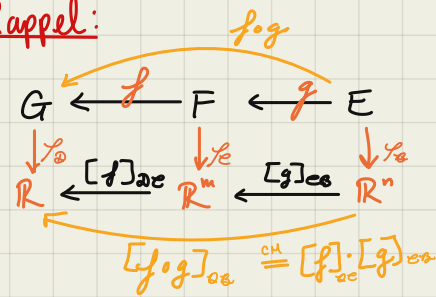 Rappel:
f∘g
G ← f F ← g E
↓ 𝒮_D ↓ 𝒮_e ↓ 𝒮_B
ℝ ← [f]_De ℝ^m ← [g]_eB ℝ^n
[f∘g]_DB =^CM [f]_De · [g]_eB